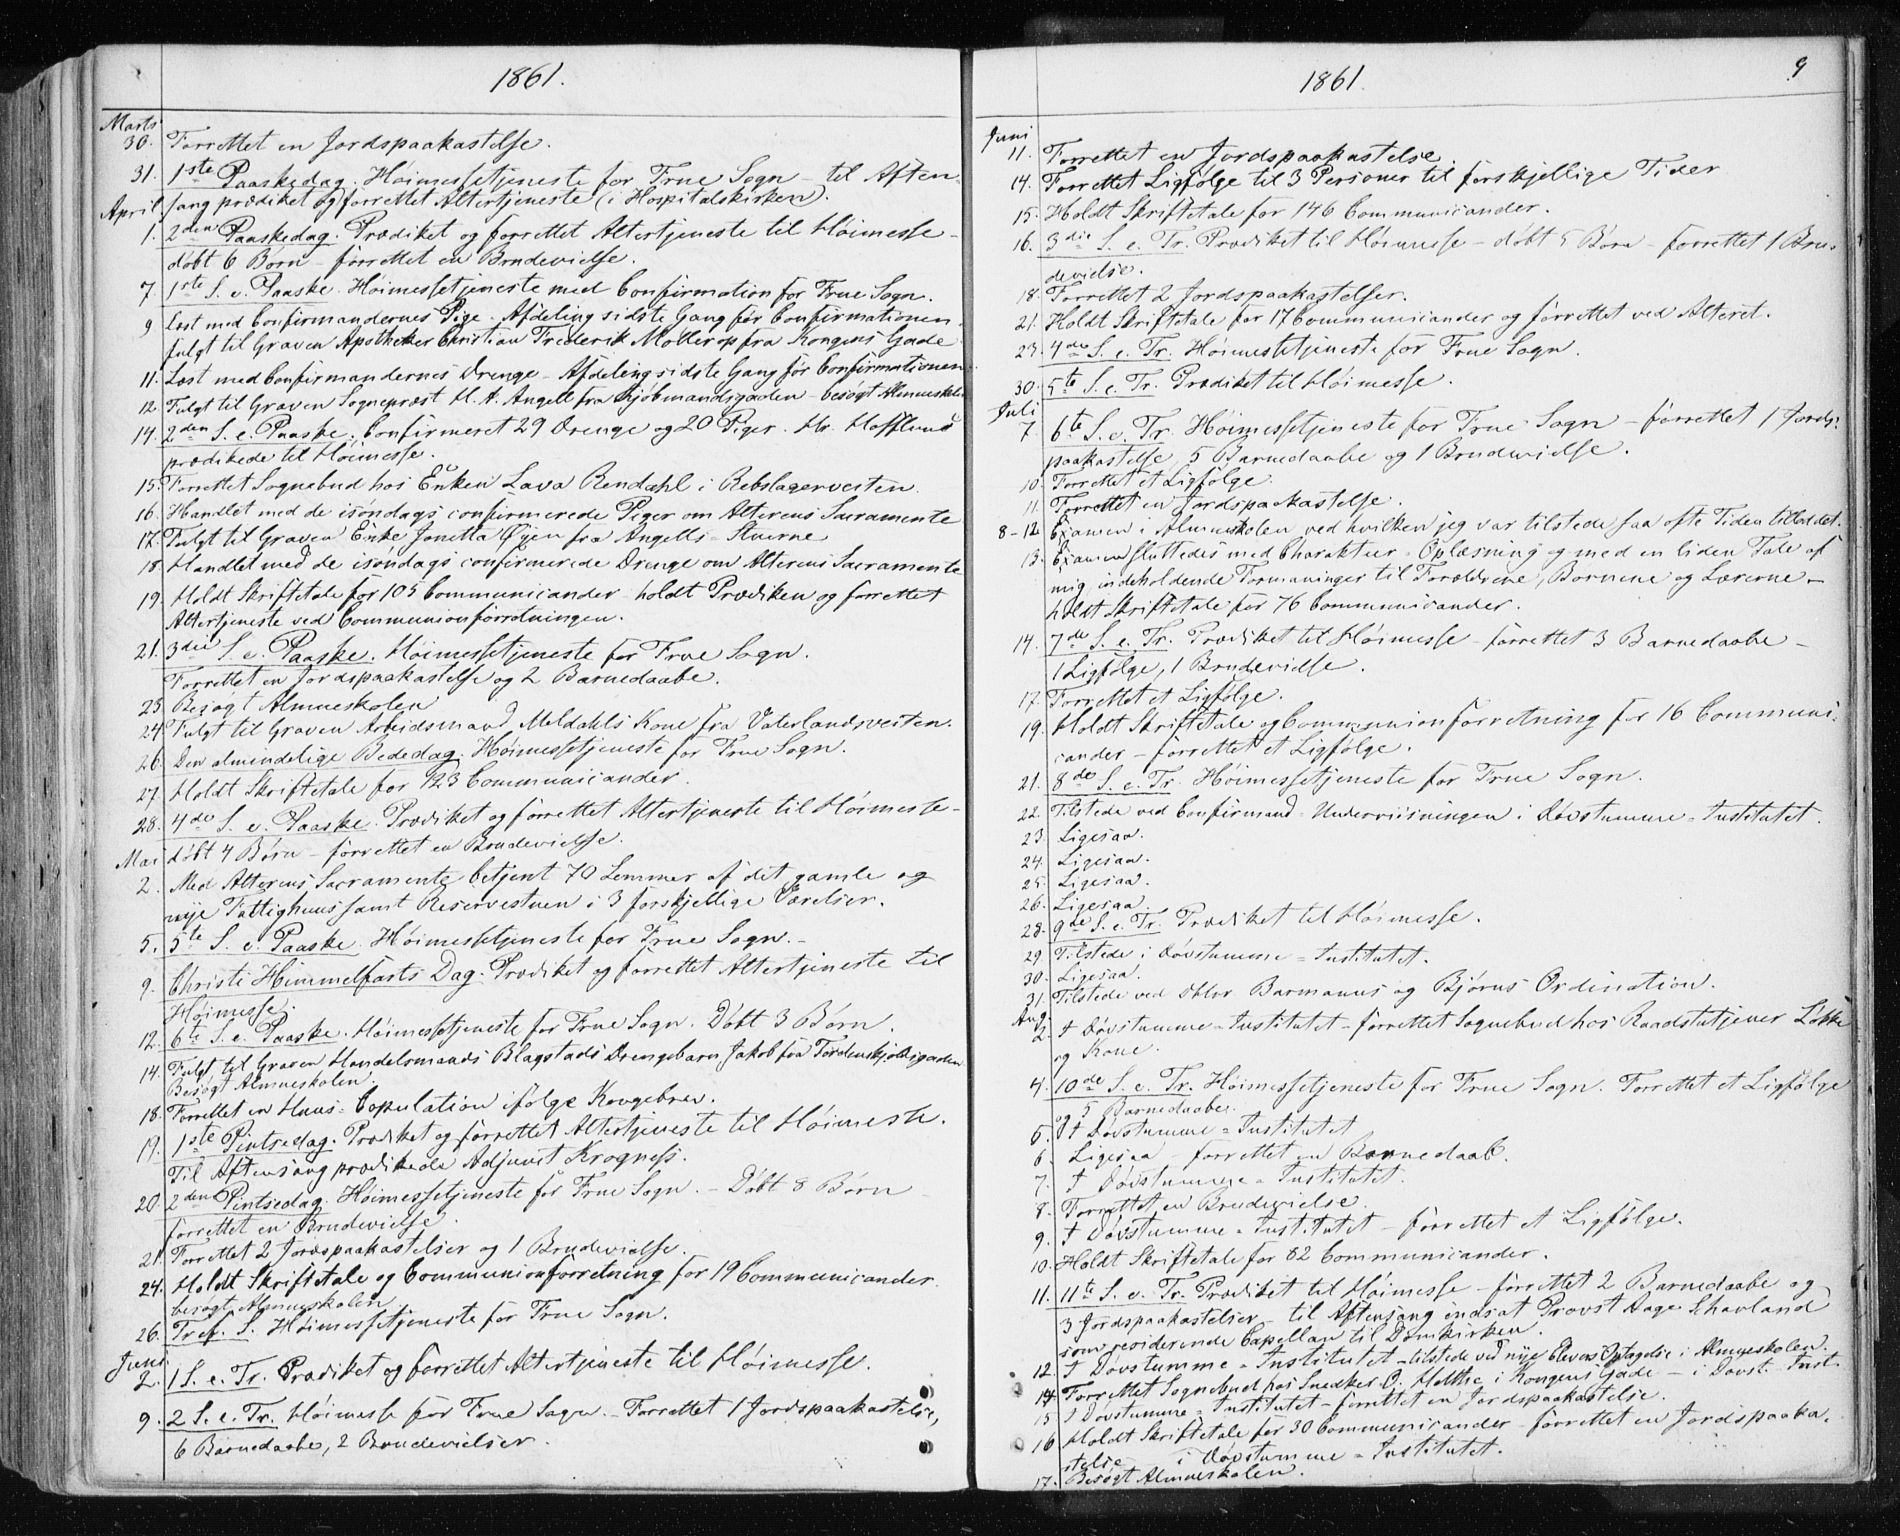 1861.
Marts
30. Forrettet en Jordspaakastelse.
31. 1ste Paaskedag. Høimessetjeneste for Frue Sogn – til Aften-
sang prædiket og forrettet Altertjeneste (i Hospitalskirken).
April
1. 2den Paaskedag. Prædiket og forrettet Altertjeneste til Høimesse –
døbt 6 Børn – forrettet en Brudevielse.
7. 1ste S. e. Paaske. Høimessetjeneste med Confirmation for Frue Sogn.
9 Læst med Confirmandernes Pige-Afdeling sidste Gang før Confirmationen.
fulgt til Graven Apotheker Christian Frederik Møllerop fra Kongens Gade
11. Læst med Confirmandernes Drenge-Afdeling sidste Gang før Confirmationen
12. Fulgt til Graven Sognepræst H. A. Angell fra Kjøbmandsgaden – besøgt Almueskolen
14. 2den S. e. Paaske. Confirmeret 29 Drenge og 20 Piger. Hr. Hofflund
prædikede til Høimesse.
15. Forrettet Sognebud hos Enken Lava Rendahl i Rebslagerveiten.
16. Handlet med de isøndags confirmerede Piger om Alterens Sacramente
17. Fulgt til Graven Enke Jonetta Øyen fra Angells-Stuerne
18. Handlet med de isøndags confirmerede Drenge om Alterens Sacramente
19. Holdt Skriftetale for 105 Communicander – holdt Prædiken og forrettet
Altertjeneste ved Communionforretningen.
21. 3die S. e. Paaske. Høimessetjeneste for Frue Sogn.
Forrettet en Jordspaakastelse og 2 Barnedaabe.
23. Besøgt Almueskolen
24. Fulgt til Graven Arbeidsmand Meldahls Kone fra Vaterlandsveiten.
26. Den almindelige Bededag. Høimessetjeneste for Frue Sogn.
27. Holdt Skriftetale for 123 Communicander.
28. 4de S. e. Paaske. Prædiket og forrettet Altertjeneste til Høimesse –
døbt 4 Børn – forrettet en Brudevielse.
Mai
2. Med Alterens Sacramente betjent 70 Lemmer af det gamle og
nye Fattighuus samt Reservestuen i 3 forskjellige Værelser.
5. 5te S. e. Paaske. Høimessetjeneste for Frue Sogn. –
9. Christi Himmelfarts Dag. Prædiket og forrettet Altertjeneste til
Høimesse.
12. 6te S. e. Paaske. Høimessetjeneste for Frue Sogn. Døbt 3 Børn.
14. Fulgt til Graven Handelsmands Blagstads Drengebarn Jakob fra Tordenskjoldsgaden
Besøgt Almueskolen.
18. Forrettet en Huus-Copulation ifølge Kongebrev.
19. 1ste Pintsedag. Prædiket og forrettet Altertjeneste til Høimesse.
Til Aftensang prædikede Adjunct Krogness.
20. 2den Pintsedag. Høimessetjeneste for Frue Sogn. – Døbt 8 Børn –
forrettet en Brudevielse.
21. Forrettet 2 Jordspaakastelser og 1 Brudevielse.
24. Holdt Skriftetale og Communionforretning for 19 Communicander.
besøgt Almueskolen
26. Tref. S. Høimessetjeneste for Frue Sogn.
Juni
2. 1 S. e. Tr. Prædiket og forrettet Altertjeneste til Høimesse.
9. 2 S. e. Tr. Høimesse for Frue Sogn. – Forrettet 1 Jordspaakastelse,
6 Barnedaabe, 2 Brudevielser.
1861.
9
Juni
11. Forrettet en Jordspaakastelse.
14. Forrettet Ligfølge til 3 Personer til forskjellige Tider
15. Holdt Skriftetale for 146 Communicander.
16. 3die S. e. Tr. Prædiket til Høimesse – døbt 5 Børn – forrettet 1 Bru-
devielse.
18. Forrettet 2 Jordspaakastelser.
21. Holdt Skriftetale for 17 Communicander og forrettet ved Alteret.
23. 4de S. e. Tr. Høimessetjeneste for Frue Sogn.
30. 5te S. e. Tr. Prædiket til Høimesse.
Juli
7. 6te S. e. Tr. Høimessetjeneste for Frue Sogn – forrettet 1 Jords-
paakastelse, 5 Barnedaabe og 1 Brudevielse.
10. Forrettet et Ligfølge.
11. Forrettet en Jordspaakastelse.
8–12. Examen i Almueskolen ved hvilken jeg var tilstede saa ofte Tiden tillod det.
13. Examen sluttedes med Charakteer-Oplæsning og med en liden Tale af
mig indeholdende Formaninger til Forældrene, Børnene og Lærerne –
holdt Skriftetale for 76 Communicander.
14. 7de S. e. Tr. Prædiket til Høimesse – forrettet 3 Barnedaabe –
1 Ligfølge, 1 Brudevielse.
17. Forrettet et Ligfølge.
19. Holdt Skriftetale og Communionforretning for 16 Communi-
cander – forrettet et Ligfølge.
21. 8de S. e. Tr. Høimessetjeneste for Frue Sogn.
22. Tilstede ved Confirmand-Underviisningen i Døvstumme-Institutet.
23. Ligesaa.
24. Ligesaa.
25. Ligesaa.
26. Ligesaa.
28. 9de S. e. Tr. Prædiket til Høimesse.
29. Tilstede i Døvstumme-Institutet.
30. Ligesaa.
31. Tilstede ved Barmanns og Bjørns Ordination.
Aug.
2. I Døvstumme-Institutet – forrettet Sognebud hos Løkke
og Kone.
4. 10de S. e. Tr. Høimessetjeneste for Frue Sogn. Forrettet et Ligfølge
og 5 Barnedaabe.
5. I Døvstumme-Institutet
6. Ligesaa – forrettet en Barnedaab.
7. I Døvstumme-Institutet.
8. Forrettet en Brudevielse.
9. I Døvstumme-Institutet – forrettet et Ligfølge.
10. Holdt Skriftetale for 82 Communicander.
11. 11te S. e. Tr. Prædiket til Høimesse – forrettet 2 Barnedaabe og
3 Jordspaakastelser – til Aftensang indsat Provst Aage Schavland
som residerende Capellan til Domkirken.
12. I Døvstumme-Institutet – tilstede ved nye Elevers Optagelse i Almueskolen.
14. Forrettet Sognebud hos Snedker O. Holthe i Kongens Gade – i Døvst. Inst.
15 I Døvstumme-Institutet – forrettet en Jordspaakastelse.
16 Holdt Skriftetale for 30 Communicander – forrettet en Jordspaaka-
stelse i Døvstumme-Institutet.
17. Besøgt Almueskolen.